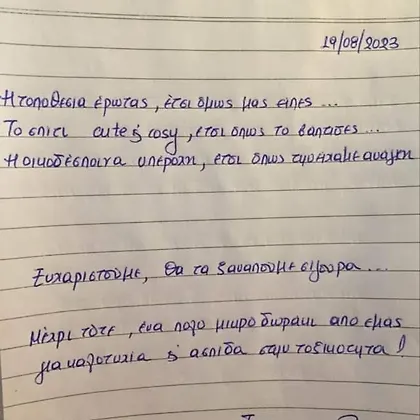 19/08/2023
Η τοποθεσια έρωτας, έτσι όμως μας είπες...
Το σπιτι cute & cosy, έτσι οπως το βαπασες...
Η οικοδέσποινα υπέροχη, έτσι όπως την είχαμε αναγκη
Ευχαριστούμε, θα τα ξαναπούμε σίγουρα...
Μέχρι τότε, ένα πολυ μικρο δωρακι απο εμας
για καλοτυχια & ασπιδα στην τοξικοτητα!